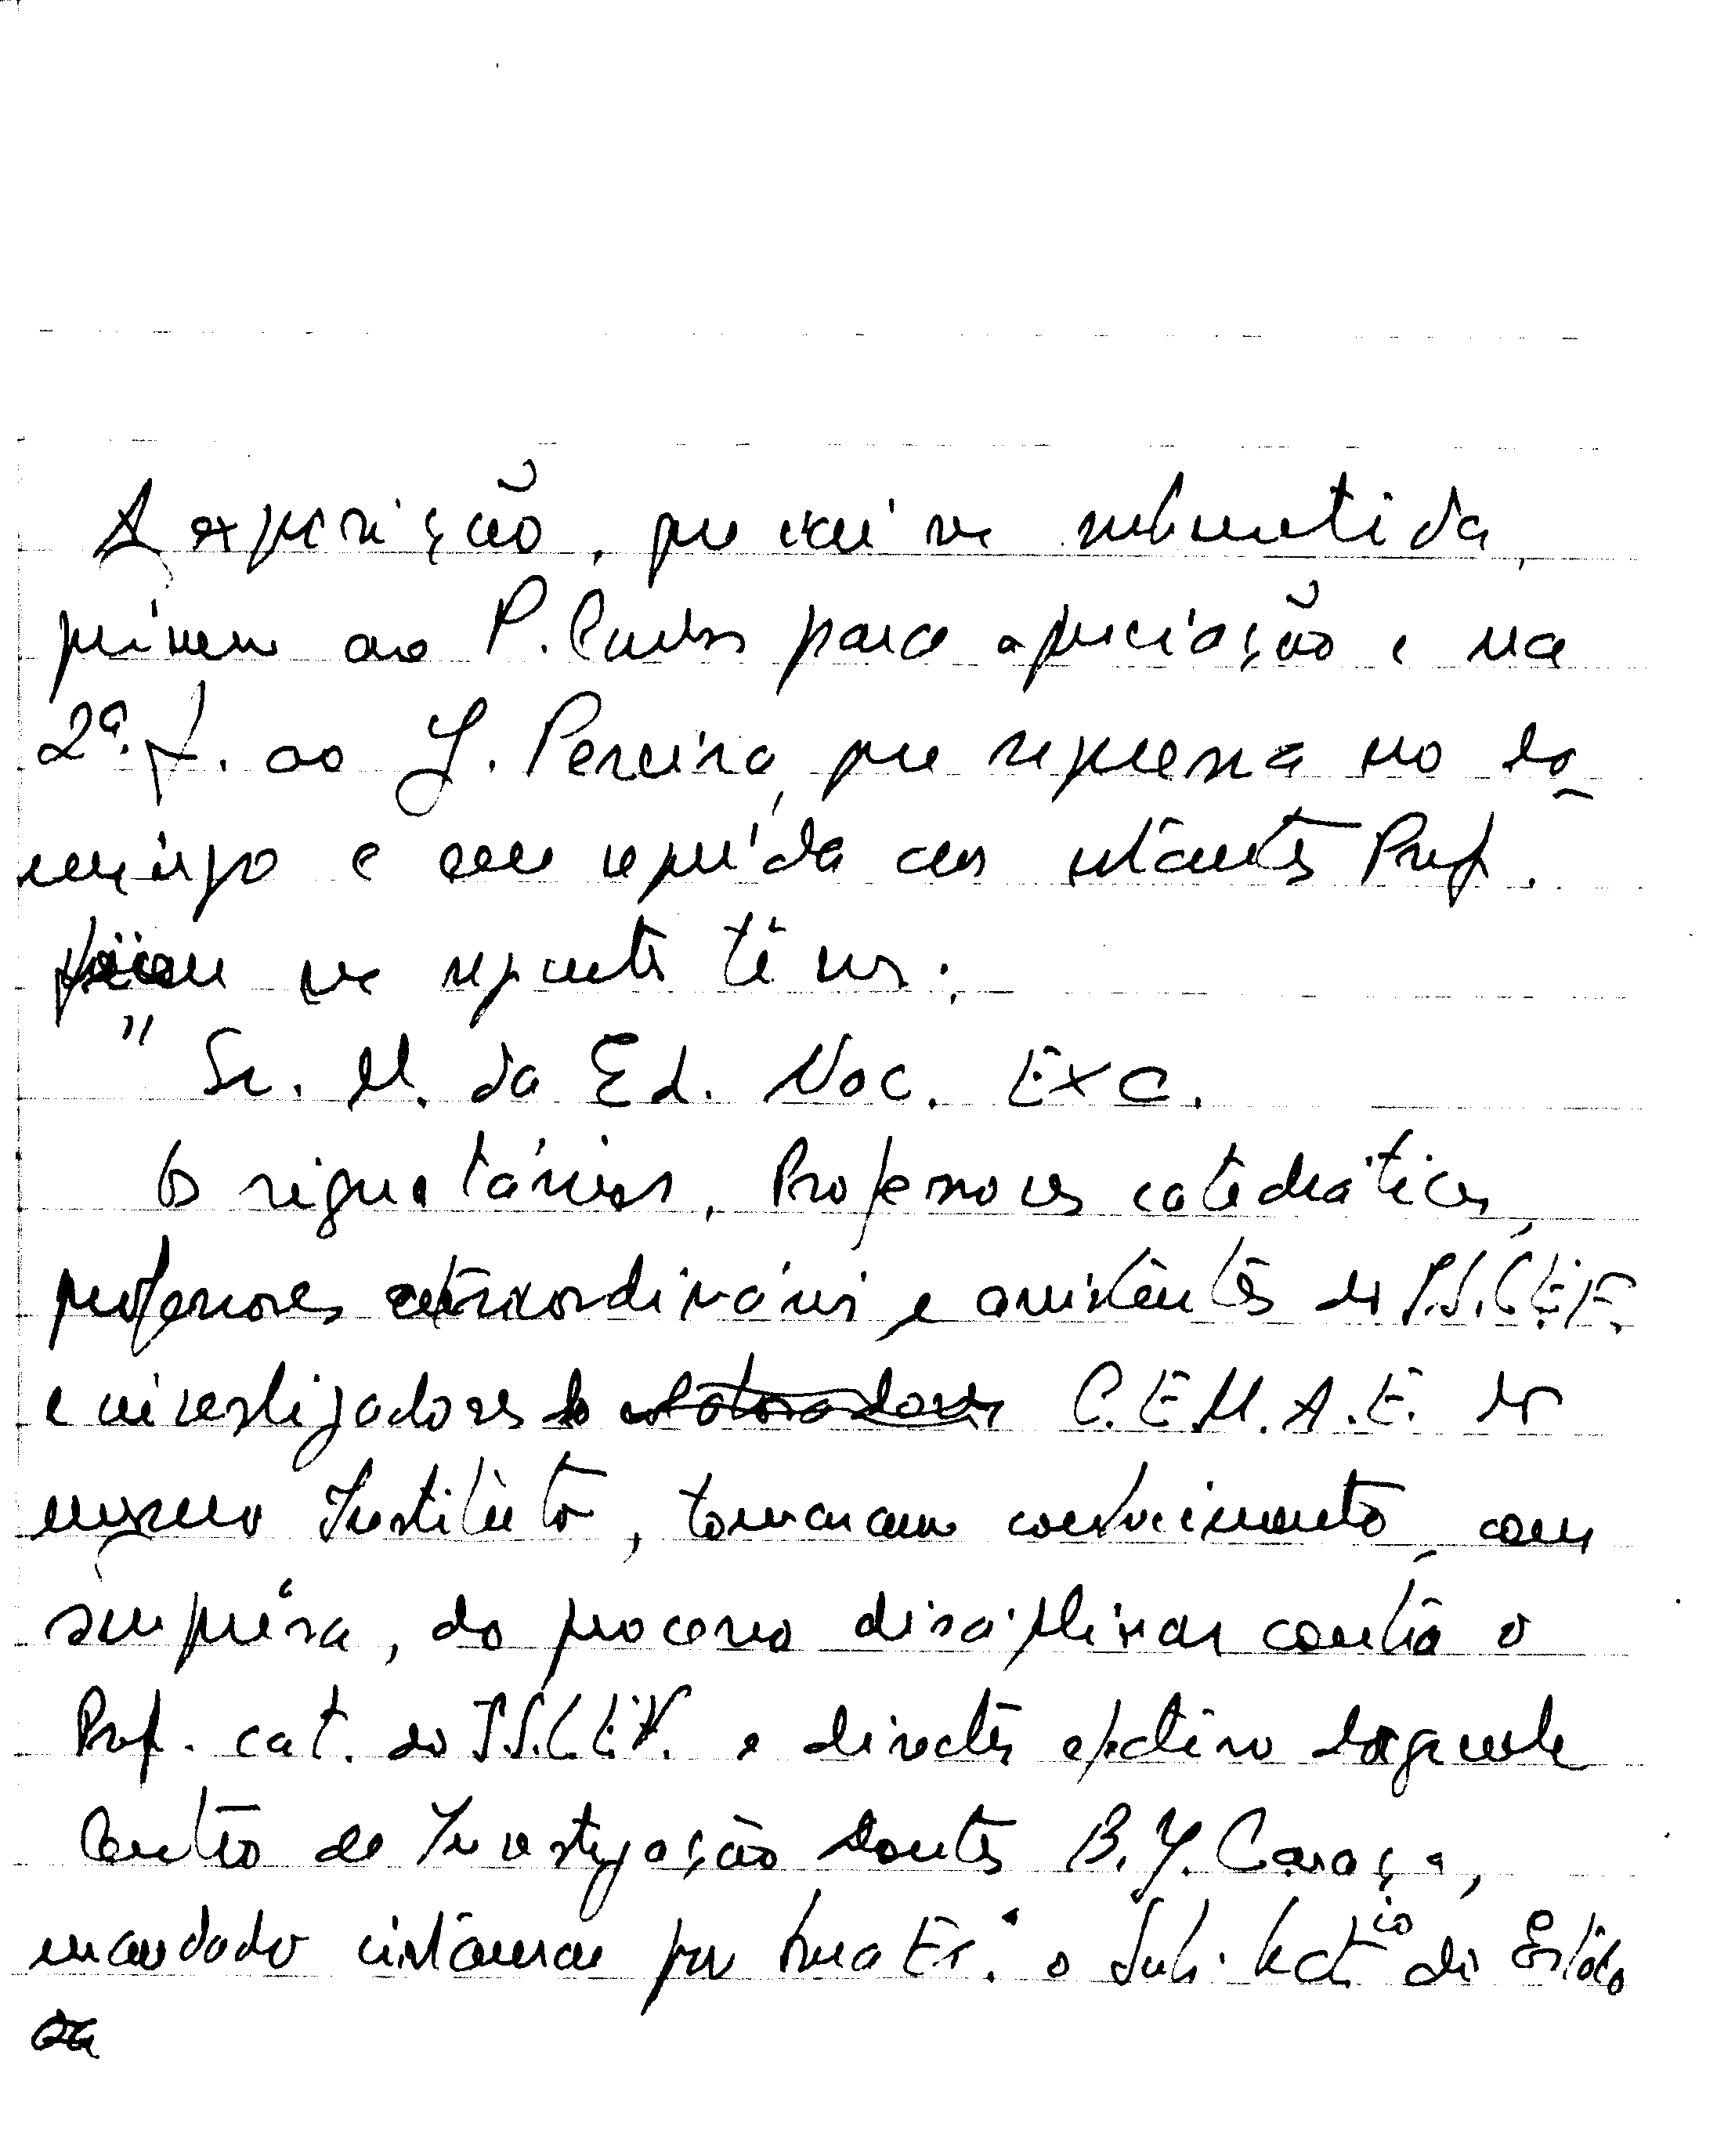 A exposição, que irei ve submetida,
primeiro ao P. Carlos para apreciação e na
2ª. f. ao J. Pereira, que regressa no do
mingo e em seguida aos restantes Prof.
ficou nos seguintes têrmos:
" Sr. M. da Ed. Nac. Exc.
Os signatários, Professores catedráticos,
professores extraordinários e assistentes do I.S.C.E.F.
e investigadores do colaboradores C.E.M.A.E. do
mesmo Instituto, tomaram conhecimento, com
surprêsa, do processo disciplinar contra o
Prof. cat. do I.S.C.E.F. e director efectivo daquele
Centro de Investigação Doutor B. J. Caraça,
mandado instaurar por Sua Ex.ª o Sub. Sect.io do Estado
da